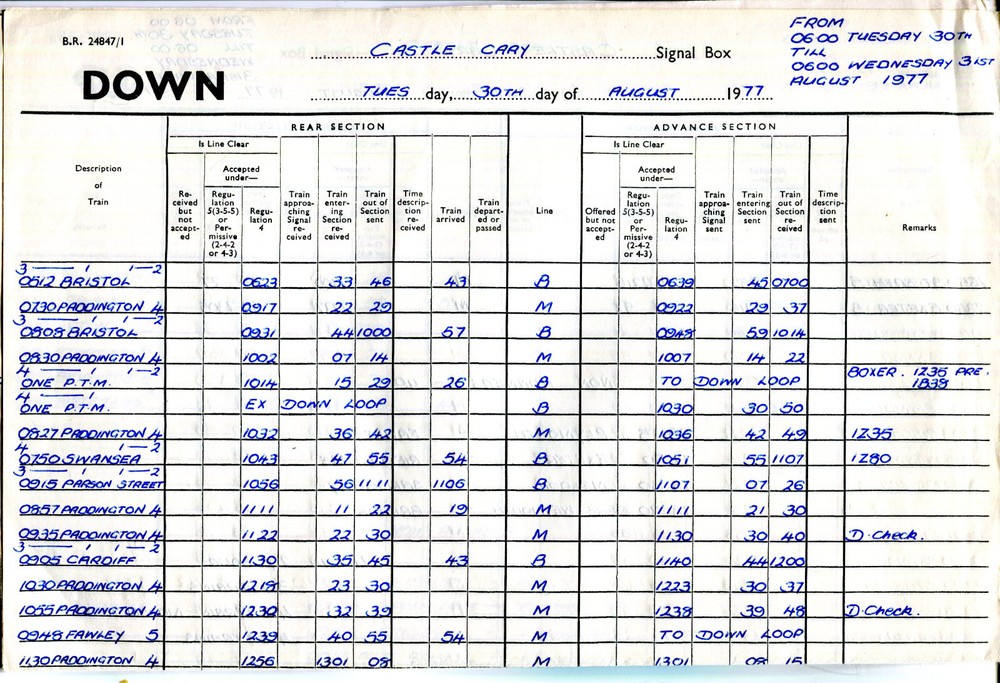 B.R. 24847/1
DOWN
CASTLE CARY Signal Box
TUES day, 30TH day of AUGUST 1977
FROM
0600 TUESDAY 30TH
TILL
0600 WEDNESDAY 31ST
AUGUST 1977
REAR SECTION
ADVANCE SECTION
Is Line Clear
Is Line Clear
Accepted under—
Accepted under—
Description of Train
Re-ceived but not accept-ed
Regu-lation 5(3-5-5) or Per-missive (2-4-2 or 4-3)
Regu-lation 4
Train approa-ching Signal re-ceived
Train enter-ing Section re-ceived
Train out of Section sent
Time descrip-tion re-ceived
Train arrived
Train depart-ed or passed
Line
Offered but not accept-ed
Regu-lation 5(3-5-5) or Per-missive (2-4-2 or 4-3)
Regu-lation 4
Train approa-ching Signal sent
Train entering Section sent
Train out of Section received
Time descrip-tion sent
Remarks
3 — 1 1—2
0512 BRISTOL 0623 33 46 43 B 0639 45 0700
0730 PADDINGTON 4 0917 22 29 M 0922 29 37
3 — 1 1—2
0808 BRISTOL 0931 44 1000 57 B 0948 59 1014
0830 PADDINGTON 4 1002 07 14 M 1007 14 22
4 — 1 1—2
ONE P.T.M. 1014 15 29 26 B TO DOWN LOOP BOXER. 1Z35 PRE. 1B38
4 — 1 1—2
ONE P.T.M. EX DOWN LOOP B 1030 30 50
0827 PADDINGTON 4 1032 36 42 M 1036 42 49 1Z35
4 1—2
0750 SWANSEA 1043 47 55 54 B 1051 55 1107 1Z80
3 — 1 1—2
0915 PARSON STREET 1056 56 1111 1106 B 1107 07 26
0857 PADDINGTON 4 1111 11 22 19 M 1111 21 30
0935 PADDINGTON 4 1122 22 30 M 1130 30 40 D. Check.
3 — 1 1—2
0905 CARDIFF 1130 35 45 43 B 1140 44 1200
1030 PADDINGTON 4 1218 23 30 M 1223 30 37
1055 PADDINGTON 4 1230 32 39 M 1238 39 48 D. Check.
0948 FAWLEY 5 1239 40 55 54 M TO DOWN LOOP
1130 PADDINGTON 4 1256 1301 08 M 1301 08 15